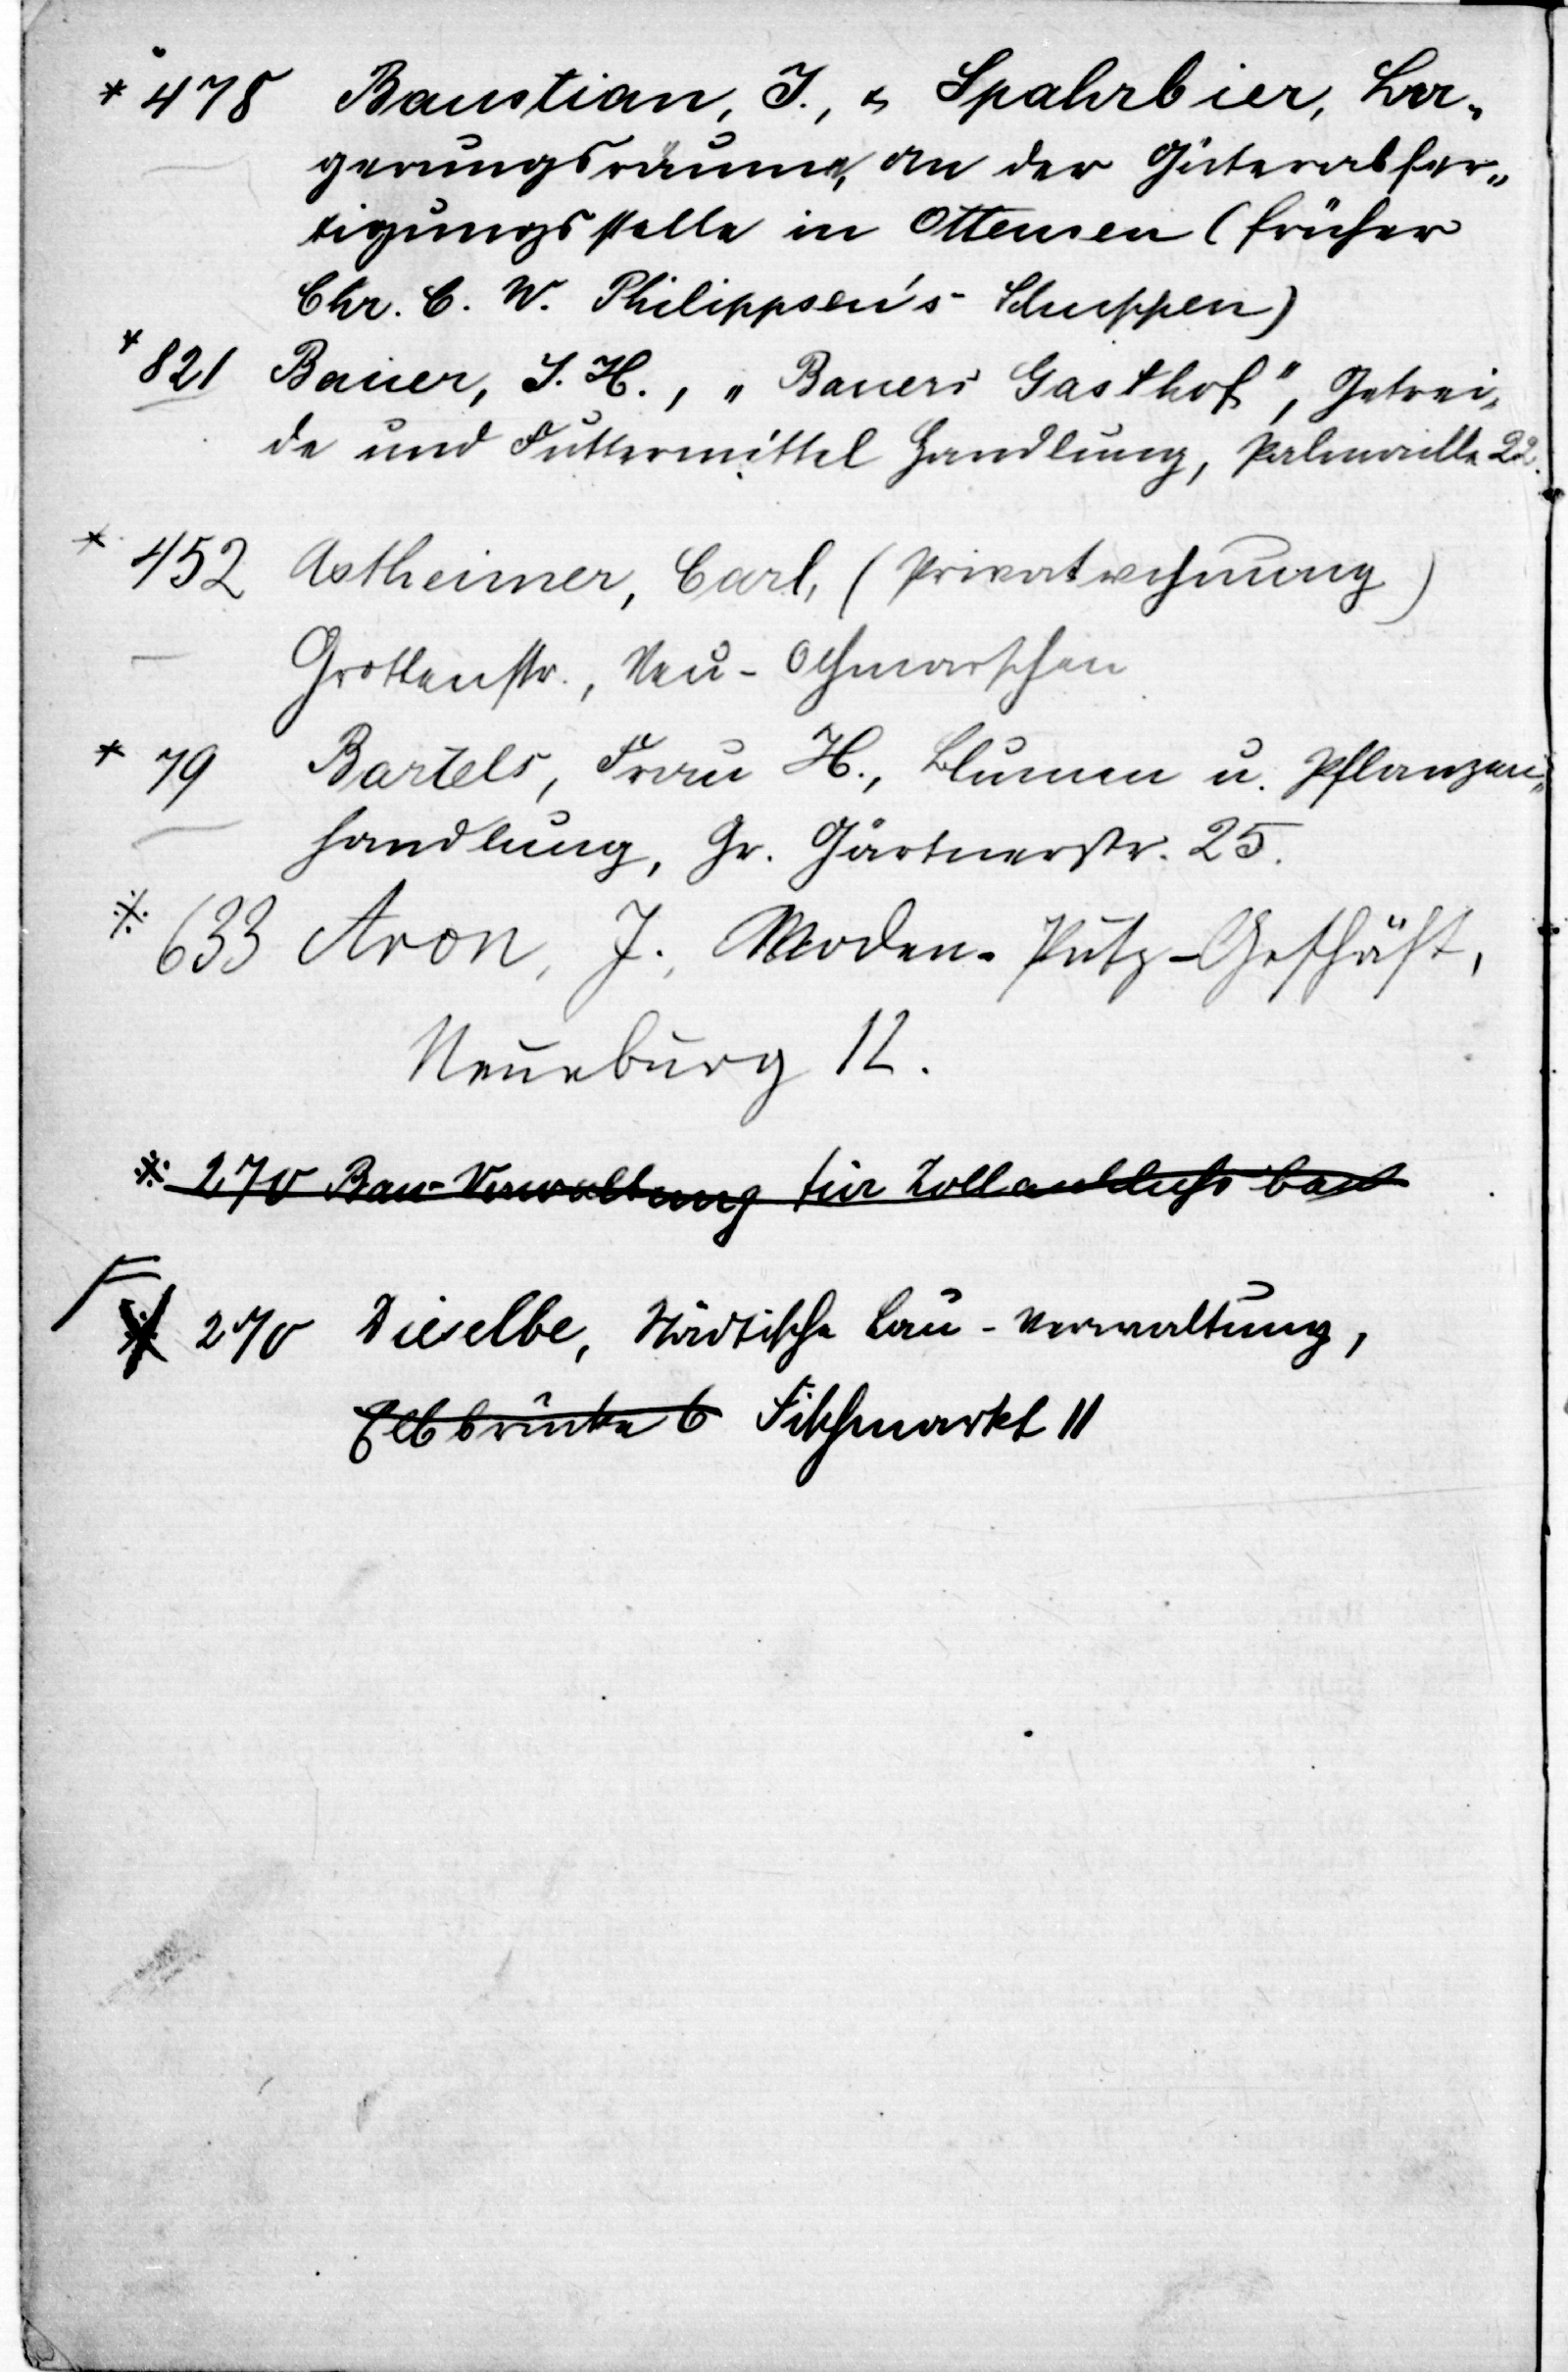 * 478 Baustian, J., & Spahrbier, La„
gerungsräume, an der Güterabfer„
tigungsstelle in Ottensen (früher
Chr. C. W. Philippsen's Schuppen)
* 821 Bauer, J. H., „Bauers Gasthof", Getrei„
de und Futtermittel Handlung, Palmaille 22.
* 452 Astheimer, Carl, (Privatwohnung)
Grottenstr., Neu-Othmarschen
* 79 Bartels, Frau H., Blumen u. Pflanzen„
handlung, Gr. Gärtnerstr. 25.
※ 633 Aron, J., Moden-Putz-Geschäft,
Neueburg 12.
※ 270 Bau-Verwaltung für Zollanschluss
※ 270 Dieselbe, Städtische Bau-Verwaltung,
Elbbrücke 6 Fischmarkt 11